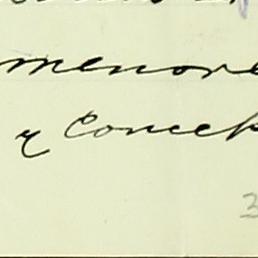 menore
y Concep
3